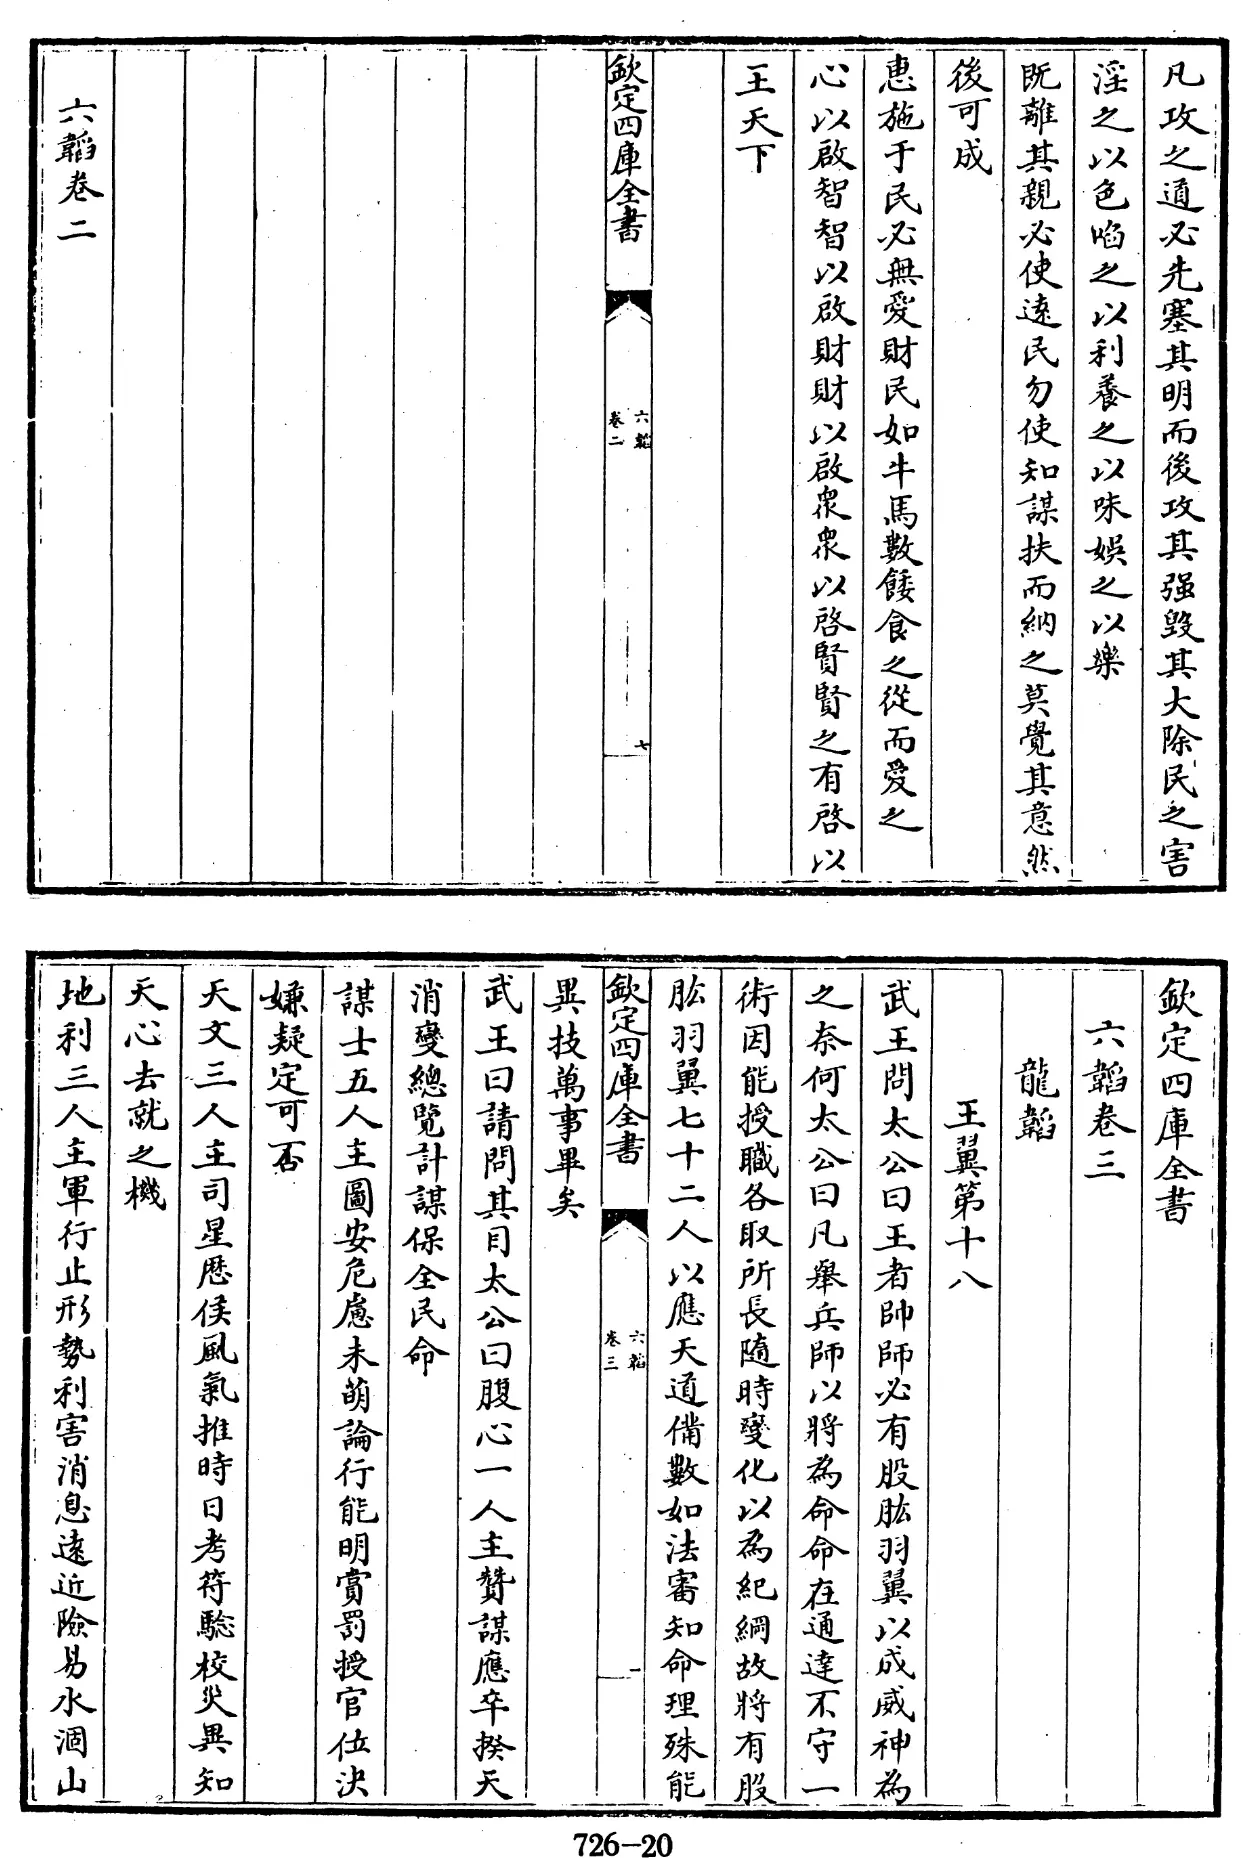 凡攻之道必先塞其明而後攻其强毁其大除民之害
淫之以色啗之以利養之以味娛之以樂
既離其親必使遠民勿使知謀扶而納之莫覺其意然
後可成
惠施于民必無愛財民如牛馬數餧食之從而愛之
心以啟智智以啟財財以啟衆衆以啓賢賢之有啓以
王天下
欽定四庫全書
六韜
卷二
七
六韜卷二
欽定四庫全書
六韜卷三
龍韜
王翼第十八
武王問太公曰王者帥師必有股肱羽翼以成威神為
之奈何太公曰凡舉兵師以將為命命在通達不守一
術因能授職各取所長隨時變化以為紀綱故將有股
肱羽翼七十二人以應天道備數如法審知命理殊能
欽定四庫全書
六韜
卷三
一
異技萬事畢矣
武王曰請問其目太公曰腹心一人主贊謀應卒揆天
消變總覽計謀保全民命
謀士五人主圖安危慮未萌論行能明賞罰授官位決
嫌疑定可否
天文三人主司星厯侯風氣推時日考符驗校災異知
天心去就之機
地利三人主軍行止形勢利害消息遠近險易水涸山
726-20